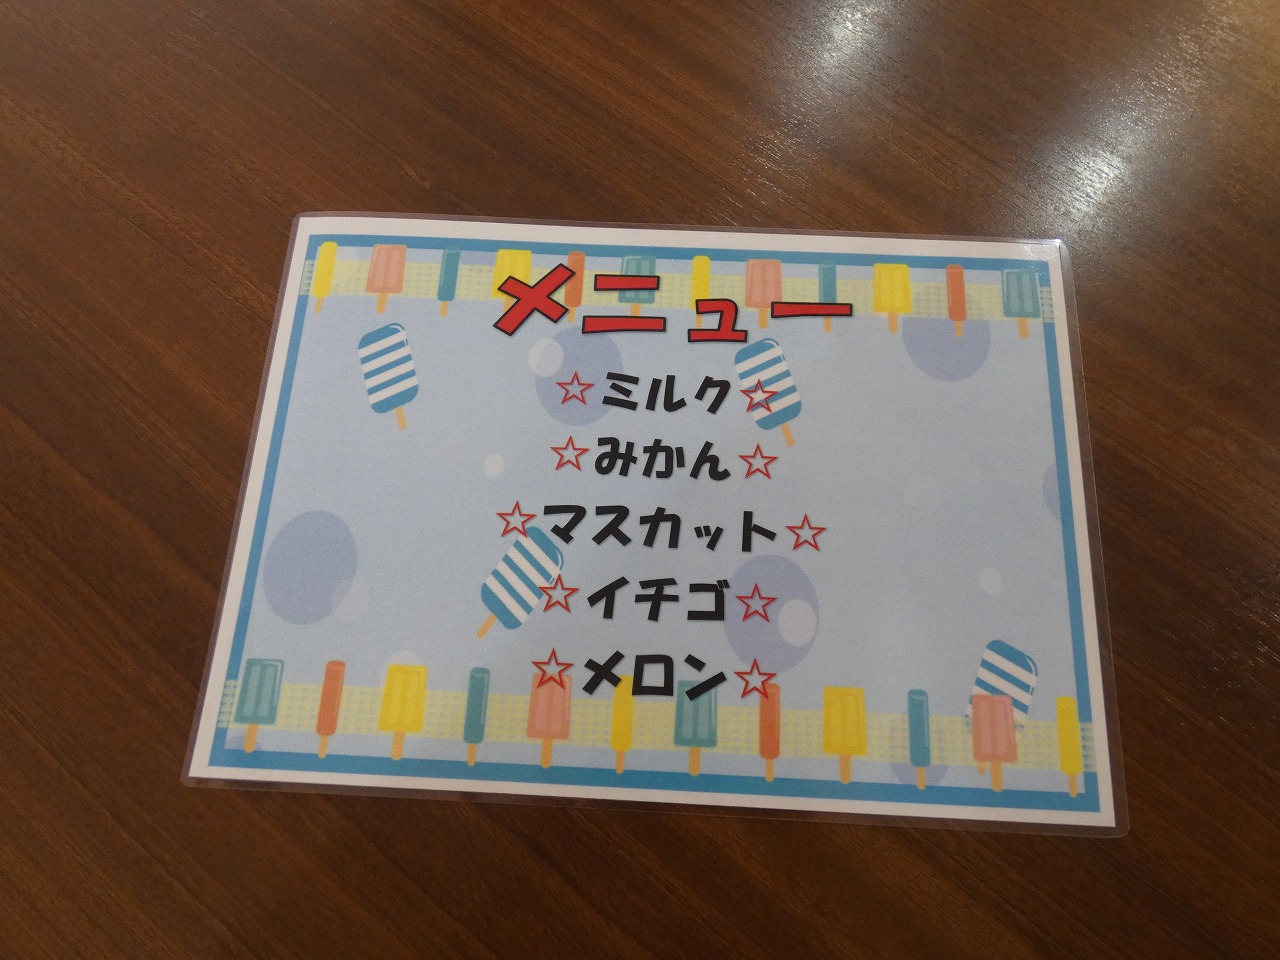 メニュー
☆ミルク☆
☆みかん☆
☆マスカット☆
☆イチゴ☆
☆メロン☆